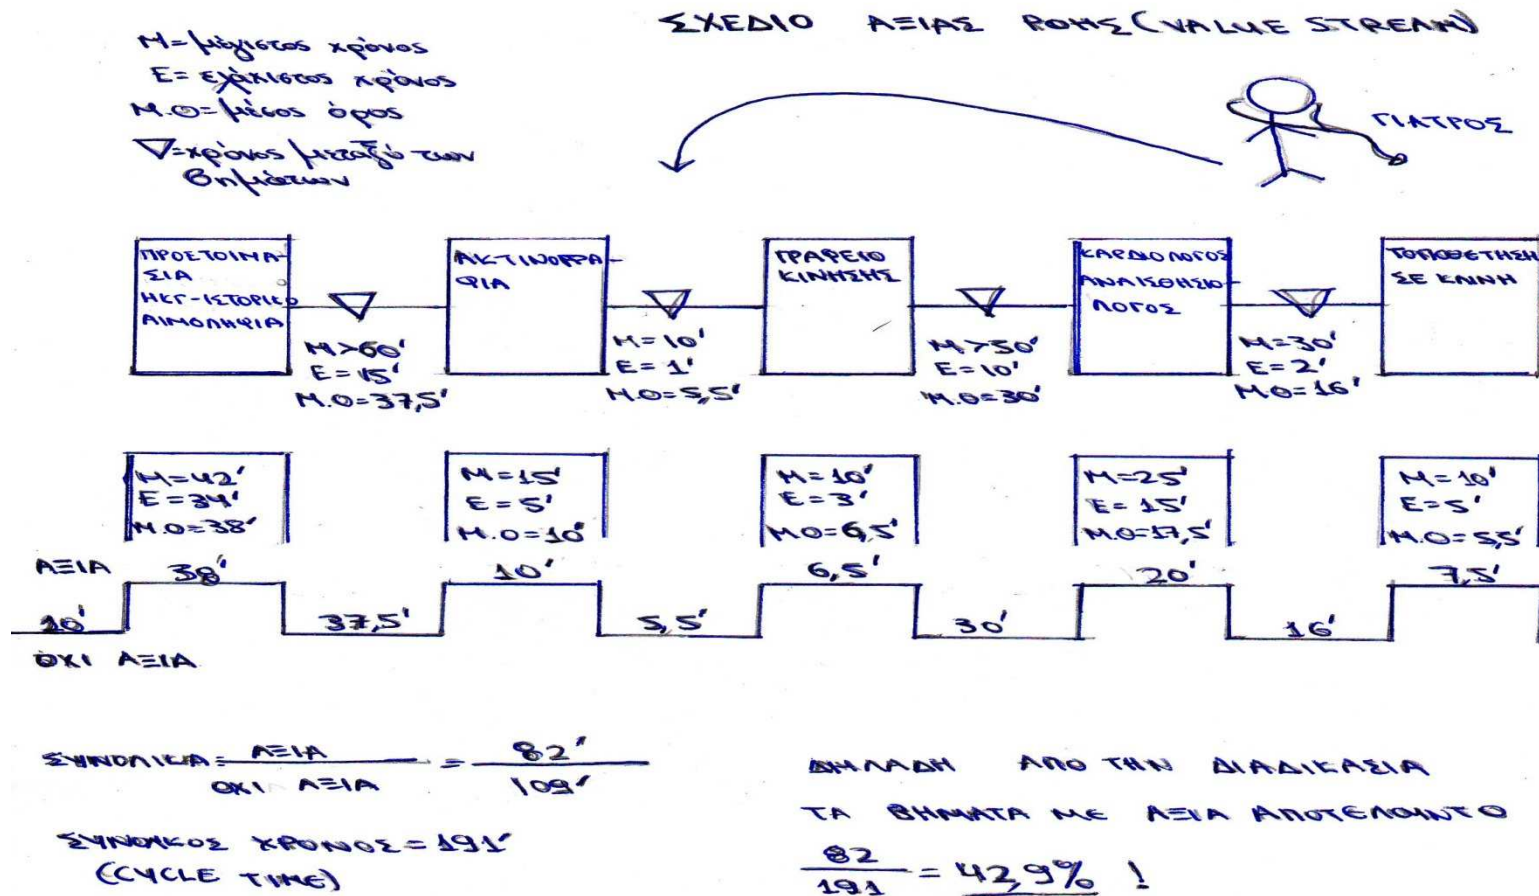 ΣΧΕΔΙΟ ΑΞΙΑΣ ΡΟΗΣ (VALUE STREAM)
Μ=μέγιστος χρόνος
Ε=ελάχιστος χρόνος
Μ.Ο=μέσος όρος
▽=χρόνος μεταξύ των
βημάτων
ΓΙΑΤΡΟΣ
ΠΡΟΕΤΟΙΜΑ-
ΣΙΑ
ΗΚΓ-ΙΣΤΟΡΙΚΟ
ΑΙΜΟΛΗΨΙΑ
Μ>60'
Ε=15'
Μ.Ο=37,5'
ΑΚΤΙΝΟΓΡΑ-
ΦΙΑ
Μ=10'
Ε=1'
Μ.Ο=5,5'
ΓΡΑΦΕΙΟ
ΚΙΝΗΣΗΣ
Μ>50'
Ε=10'
Μ.Ο=30'
ΚΑΡΔΙΟΛΟΓΟΣ
ΑΝΑΙΣΘΗΣΙΟ-
ΛΟΓΟΣ
Μ=30'
Ε=2'
Μ.Ο=16'
ΤΟΠΟΘΕΤΗΣΗ
ΣΕ ΚΛΙΝΗ
Μ=42'
Ε=34'
Μ.Ο=38'
Μ=15'
Ε=5'
Μ.Ο=10'
Μ=10'
Ε=3'
Μ.Ο=6,5'
Μ=25'
Ε=15'
Μ.Ο=17,5'
Μ=10'
Ε=5'
Μ.Ο=5,5'
ΑΞΙΑ 38' 10' 6,5' 20' 7,5'
10' 37,5' 5,5' 30' 16'
ΟΧΙ ΑΞΙΑ
ΣΥΝΟΛΙΚΑ = ΑΞΙΑ = 82'
ΟΧΙ ΑΞΙΑ 109'
ΣΥΝΟΛΙΚΟΣ ΧΡΟΝΟΣ = 191'
(CYCLE TIME)
ΔΗΛΑΔΗ ΑΠΟ ΤΗΝ ΔΙΑΔΙΚΑΣΙΑ
ΤΑ ΒΗΜΑΤΑ ΜΕ ΑΞΙΑ ΑΠΟΤΕΛΟΥΝ ΤΟ
82
191 = 42,9% !